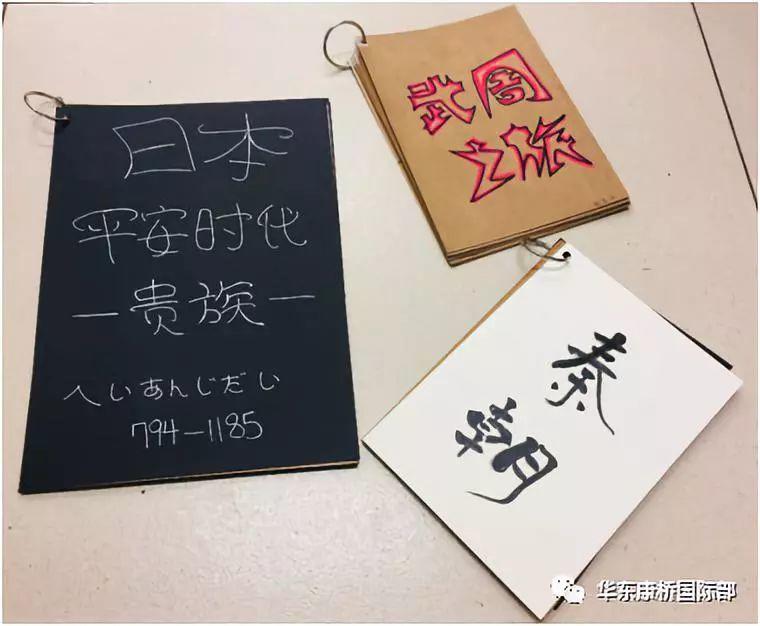 日本
平安时代
—贵族—
へいあんじだい
794-1185
武周
之旅
秦
朝
华东康桥国际部